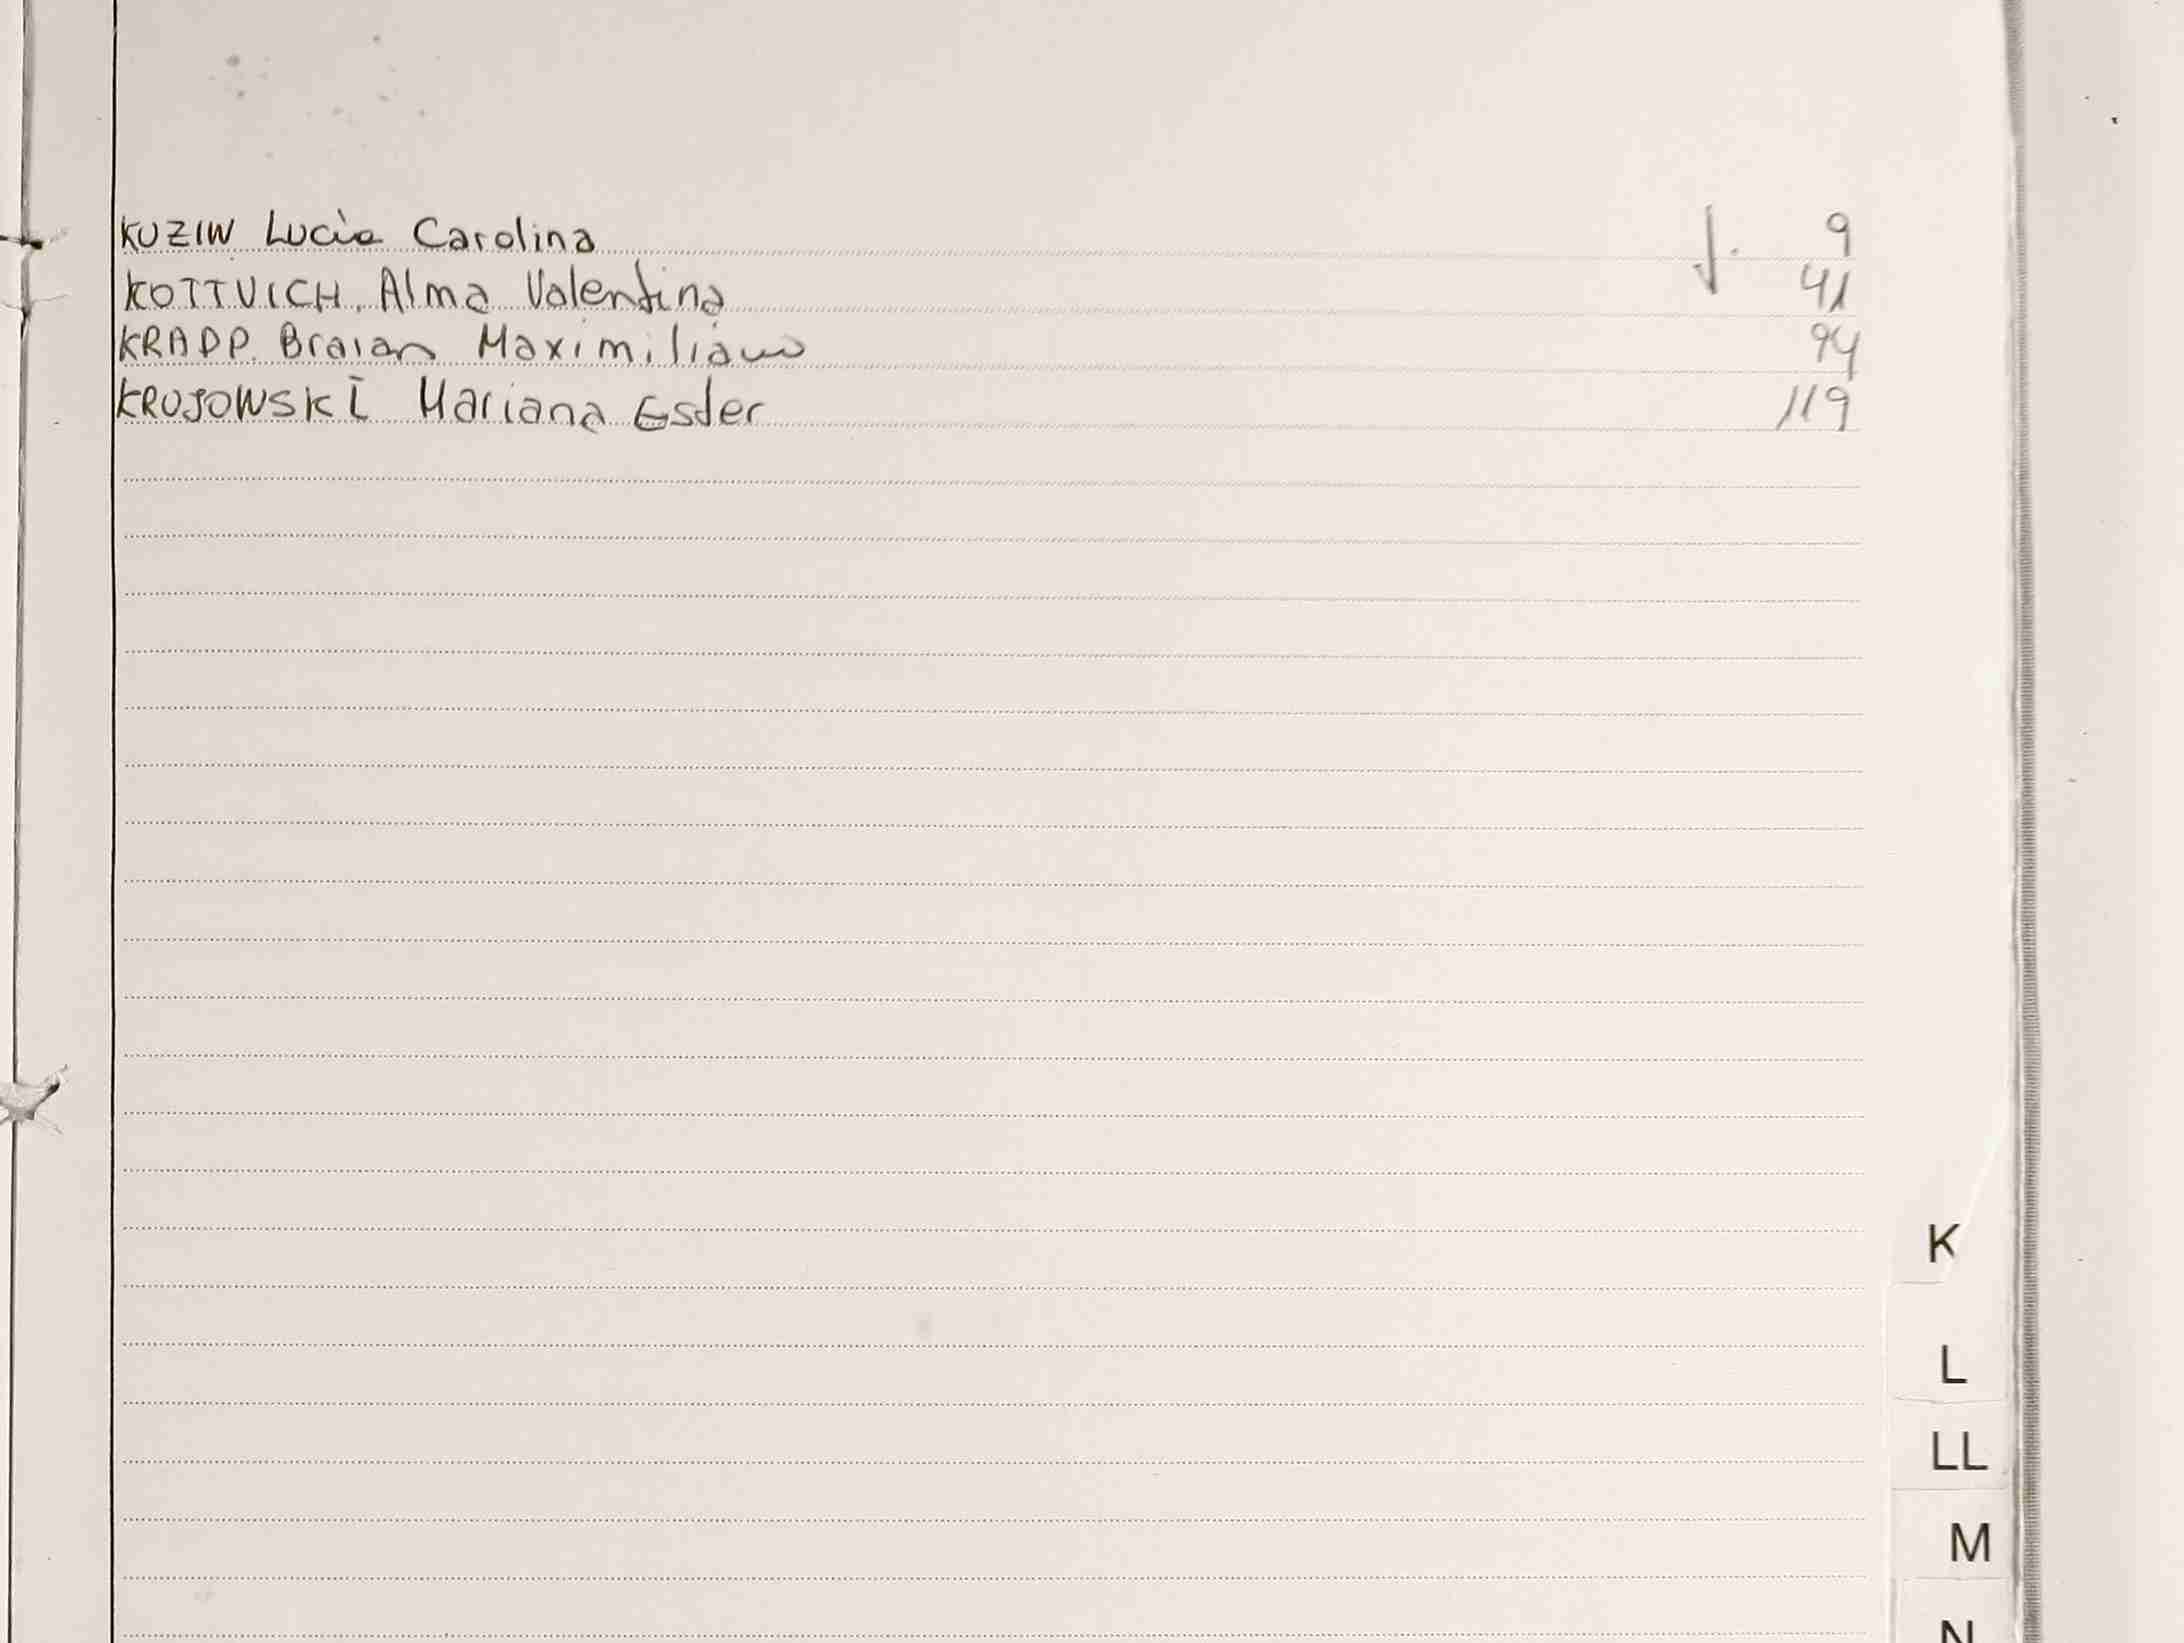 KUZIW Lucía Carolina 9
KOTTVICH, Alma Valentina 41
KRAPP. Braian Maximiliano 94
KRUJOWSKI Mariana Ester 119
K
L
LL
M
N